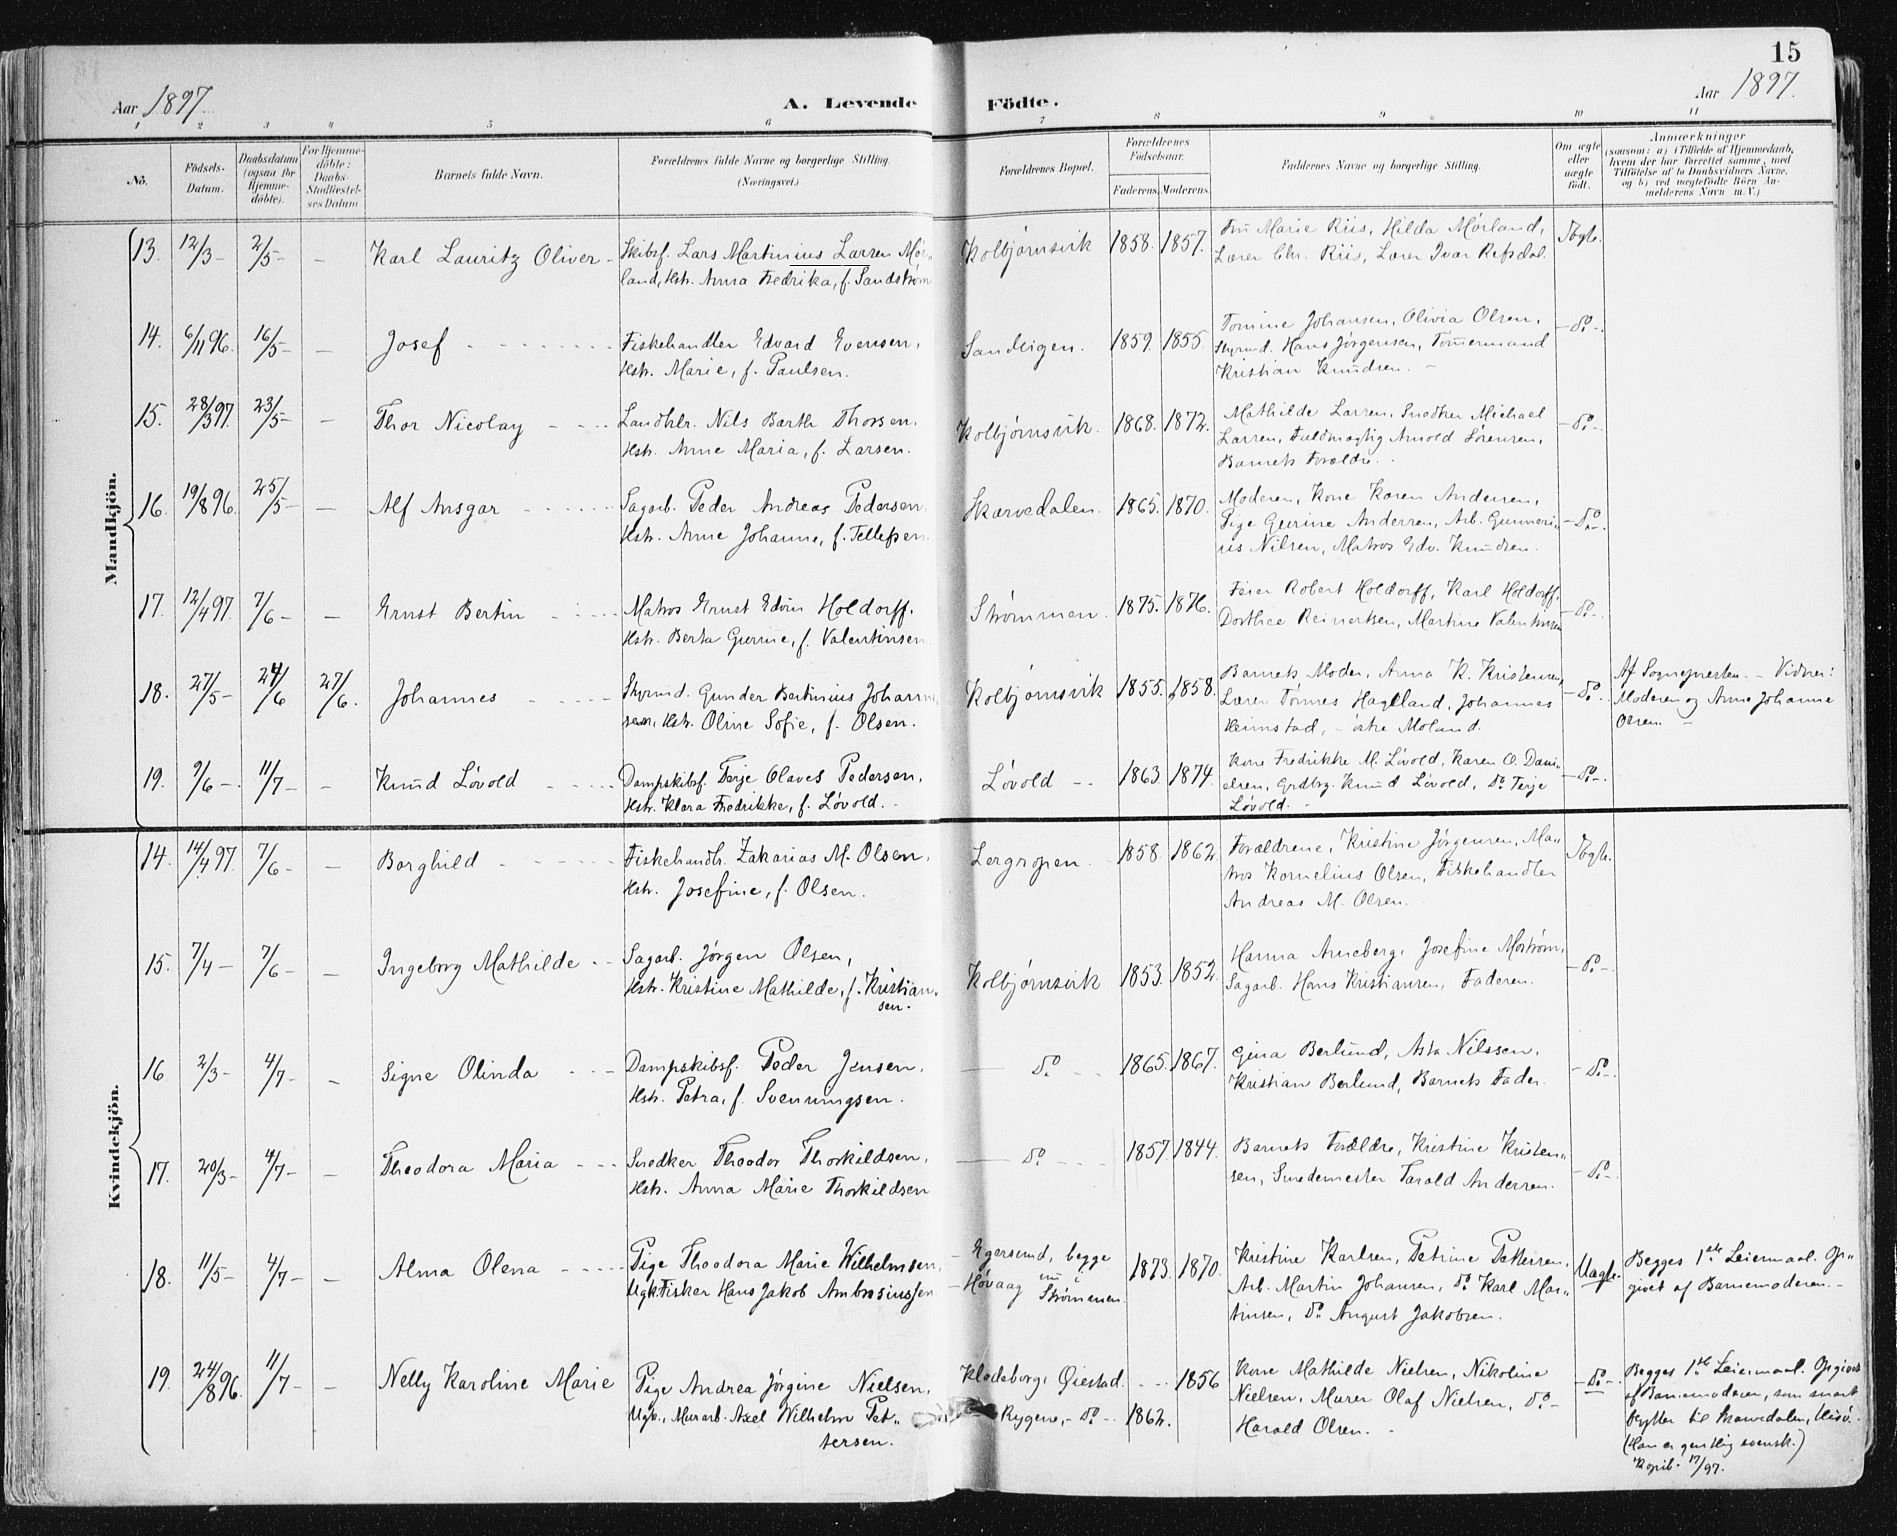 15
Aar 1897.
A. Levende Födte.
Aar 1897.
1 2 3 4 5 6 7 8 9 10 11
No.
Födsels-Datum.
Daabsdatum (ogsaa for Hjemme-döbte).
For Hjemme-döbte: Daabs-Stadfæstel-ses Datum
Barnets fulde Navn.
Forældrenes fulde Navne og borgerlige Stilling.
(Næringsvei.)
Forældrenes Bopæl.
Forældrenes Födselsaar.
Faderens. Moderens.
Faddernes Navne og borgerlige Stilling.
Om ægte eller uægte födt.
Anmærkninger
(saasom: a) i Tilfælde af Hjemmedaab,
hvem der har forrettet samme, med
Tilföielse af to Daabsvidners Navne,
og b) ved uægtefödte Börn An-
melderens Navn m. V.)
Mandkjön.
13. 12/3 - 2/5 - - Karl Lauritz Oliver - Skibsf. Lars Martinius Larsen Mør- Kolbjørnsvik 1858. 1857. Fru Marie Riis, Hilda Mørland, Ægte.
land, Hstr. Anna Fredrika, f. Sandstrøm Lærer Chr. Riis, Lærer Ivar Refsdal.
14. 6/11 96. 16/5 - - Josef - Fiskehandler Edvard Evensen, Sandvigen. 1859. 1855. Tomine Johansen, Olivia Olsen, - do -
Hstr. Marie, f. Paulsen. Styrmd. Hans Jørgensen, Tømmermand
Kristian Knudsen. -
15. 28/3 97. 23/5 - - Thor Nicolay - Landhlr. Nils Barth Thorsen, Kolbjørnsvik. 1868. 1872. Mathilde Larsen, Snedker Michael - do -
Hstr. Anne Maria, f. Larsen. Larsen, Fuldmægtig Arnold Sørensen,
Barnets Forældre.
16. 19/8 96. 25/5 - - Alf Ansgar - Sagarb. Peder Andreas Pedersen, Skarvedalen. 1865. 1870. Moderen, Kone Karen Andersen, - do -
Hstr. Anne Johanne, f. Tellefsen Pige Gurine Andersen, Arb. Gunneri-
us Nilsen, Matros Edv. Knudsen.
17. 12/4 97. 7/6 - - Ernst Bertin - Matros Ernst Edvin Holdorff. Strømmen. 1875. 1876. Feier Robert Holdorff, Karl Holdorff, - do -
Hstr. Berta Gurine, f. Valentinsen Dorthea Reinertsen, Martine Valentinsen
18. 27/5 - 24/6 27/6. Johannes - Styrmd. Gunder Bertinius Johanne- Kolbjørnsvik 1855. 1858. Barnets Moder, Anna K. Kristensen, - do - Af Sognepresten. - Vidner:
sen, Hstr. Oline Sofie, f. Olsen. Lærer Tønnes Hagelland, Johannes Moderen og Anne Johanne
Heimstad, - østre Moland. Olsen. -
19. 9/6 - 11/7 - - Knud Løvold - Dampskibsf. Terje Olaves Pedersen, Løvold - 1863 1874. Kone Fredrikke M. Løvold, Karen O. Dani- - do -
Hstr. Klara Fredrikke, f. Løvold. - elsen, Grdbrg. Knud Løvold, Do Terje
Løvold. -
Kvindekjön.
14. 14/4 97. 7/6 - - Borghild - Fiskehandl. Zakarias M. Olsen, Lergropen 1858. 1862. Forældrene, Kristine Jørgensen, Ma- Ægte.
Hstr. Josefine, f. Olsen. tros Kornelius Olsen, Fiskehandler
Andreas M. Olsen.
15. 7/4 - 7/6 - - Ingeborg Mathilde - Sagarb. Jørgen Olsen, Kolbjørnsvik 1853. 1852. Hanna Arneberg, Josefine Mostrøm, - do -
Hstr. Kristine Mathilde, f. Kristian- Sagarb. Hans Kristiansen, Faderen.
sen.
16 2/3 - 4/7 - - Signe Olinda - Dampskibsf. Peder Jensen, - do - 1865. 1867. Gina Berlund, Asta Nilssen, - do -
Hstr. Petra, f. Svenningsen. Kristian Berlund, Barnets Fader.
17. 20/3 - 4/7 - - Theodora Maria - Snedker Theodor Thorkildsen, - do - 1857. 1844. Barnets Forældre, Kristine Kristen- - do -
Hstr. Anna Marie Thorkildsen sen, Smedemester Tarald Andersen.
18. 11/5 - 4/7 - - Alma Olena - Pige Theodora Marie Wilhelmsen, - Egersund, begge 1873. 1870. Kristine Karlsen, Petrine Pettersen, Uægte. Begges 1ste Leiermaal. Op-
Ugk Fisker Hans Jakob Ambrosiussen - Høvaag nu i Strømmen. Arb. Martin Johansen, do Karl Mar- givet af Barnemoderen. -
tinsen, Do August Jakobsen.
19. 24/8 96. 11/7 - - Nelly Karoline Marie Pige Andrea Jørgine Nielsen, Klodeborg, Øiestad. - 1856 Kone Mathilde Nielsen, Nikoline - do - Begges 1ste Leiermaal. Opgives
Ugk., Murarb. Axel Wilhelm Pet- Rygene, - do - 1862. Nielsen, Murer Olaf Nielsen, do - af Barnemoderen, som snart
tersen. Harald Olsen. - flytter til Skarvedalen, Hisø.
(Han er gentlig svensk.)
Kopib. 17/97.